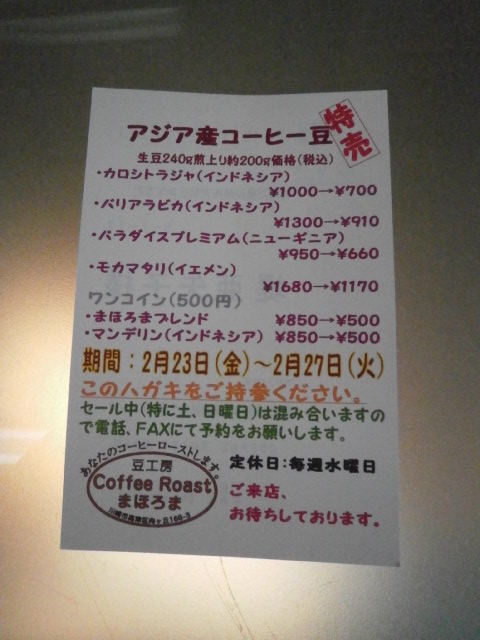 特売
アジア産コーヒー豆
生豆240g煎上り約200g価格(税込)
・カロシトラジャ(インドネシア)
¥1000→¥700
・バリアラビカ(インドネシア)
¥1300→¥910
・パラダイスプレミアム(ニューギニア)
¥950→¥660
・モカマタリ(イエメン)
¥1680→¥1170
ワンコイン(500円)
・まほろまブレンド ¥850→¥500
・マンデリン(インドネシア) ¥850→¥500
期間：2月23日(金)～2月27日(火)
このハガキをご持参ください。
セール中(特に土、日曜日)は混み合いますの
で電話、FAXにて予約をお願いします。
あなたのコーヒーローストします。
豆工房
Coffee Roast
まほろま
定休日:毎週水曜日
ご来店、
お待ちしております。